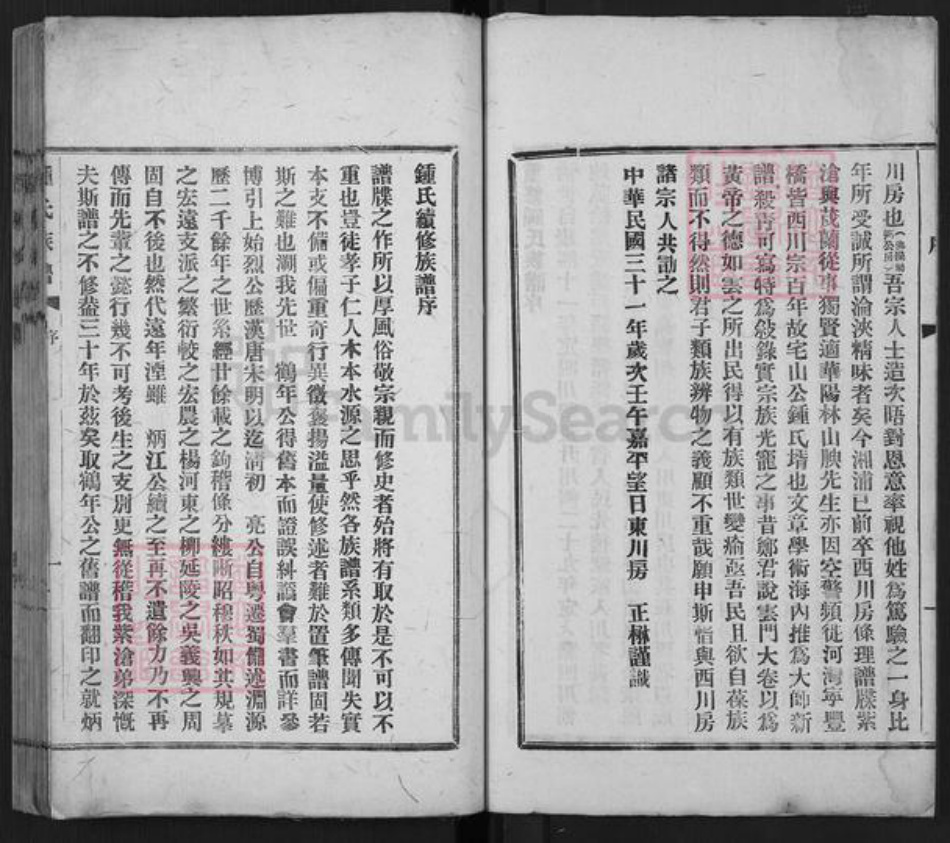 川房也吾宗人士造次晤對恩意率視他姓爲篤驗之一身比
年所受誠所謂淪浹精味者矣今湘浦已前卒西川房條理譜牒紫
滄與茂蘭從事獨賢適華陽林山腴先生亦因空警頻徙河灣寧豐
橋皆西川宗百年故宅山公鍾氏壻也文章學術海內推爲大師新
譜殺靑可寫特爲敍錄實宗族光寵之事昔鄭君說雲門大卷以爲
黃帝之德如雲之所出民得以有族類世變瘉亟吾民且欲自葆族
類而不得然則君子類族辨物之義顧不重哉願申斯恉與西川房
諸宗人共勖之
中華民國三十一年歲次壬午嘉平望日東川房 正楙謹識
鍾氏續修族譜序
譜牒之作所以厚風俗敬宗親而修史者殆將有取於是不可以不
重也豈徒孝子仁人木本水源之思乎然各族譜系類多傳聞失實
本支不備或偏重奇行異徵褒揚溢量使修述者難於置筆譜固若
斯之難也溯我先世 鶴年公得舊本而證誤糾譌會羣書而詳參
博引上始烈公歷漢唐宋明以迄淸初 亮公自粤遷蜀備述淵源
歷二千餘年之世系經廿餘載之鉤稽條分縷晰昭穆秩如其規摹
之宏遠支派之繁衍較之宏農之楊河東之柳延陵之吳義興之周
固自不後也然代遠年湮雖 炳江公續之至再不遺餘力乃不再
傳而先輩之懿行幾不可考後生之支別更無從稽我紫滄弟深慨
夫斯譜之不修葢三十年於茲矣取鶴年公之舊譜而翻印之就炳
序
一
FamilySearch